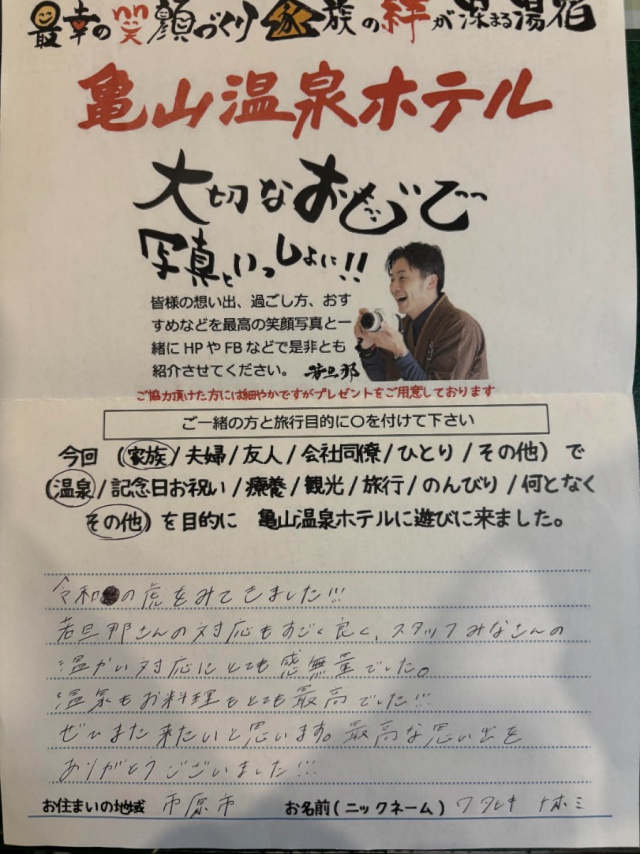 最幸の笑顔づくり家族の絆が深まる湯宿
亀山温泉ホテル
大切なおもいで
写真といっしょに!!
皆様の想い出、過ごし方、おす
すめなどを最高の笑顔写真と一
緒にHPやFBなどで是非とも
紹介させてください。 若旦那
ご協力頂けた方には細やかですがプレゼントをご用意しております
ご一緒の方と旅行目的に〇を付けて下さい
今回 (家族/夫婦/友人/会社同僚/ひとり/その他) で
(温泉/記念日お祝い/療養/観光/旅行/のんびり/何となく
その他) を目的に 亀山温泉ホテルに遊びに来ました。
令和の虎をみてきました!!!
若旦那さんの対応もすごく良く、スタッフみなさんの
温かい対応にとても感無量でした。
温泉もお料理もとても最高でした!!!
ぜひまた来たいと思います。最高な思い出を
ありがとうございました!!!
お住まいの地域 市原市 お名前(ニックネーム) ナホミ